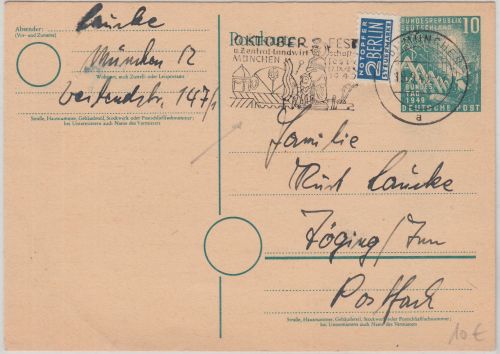 Absender:
(Vor- und Zuname)
Laucke
München 12
Wohnort, auch Zustell- oder Leitpostamt
Westendstr. 147/I
Straße, Hausnummer, Gebäudeteil, Stockwerk oder Postschließfachnummer;
bei Untermietern auch Name des Vermieters
Postkarte
OKTOBER FEST
u.Zentral-Landwirtschaft
MÜNCHEN
1949
NOTOPFER
2 BERLIN
STEUERMARKE
MÜNCHEN
a
BUNDESREPUBLIK
DEUTSCHLAND
10
BUNDES
TAG
1949
DEUTSCHE POST
Familie
Kurt Laucke
Töging/Inn
Postfach
Straße, Hausnummer, Gebäudeteil, Stockwerk oder Postschließfachnummer;
bei Untermietern auch Name des Vermieters
10€